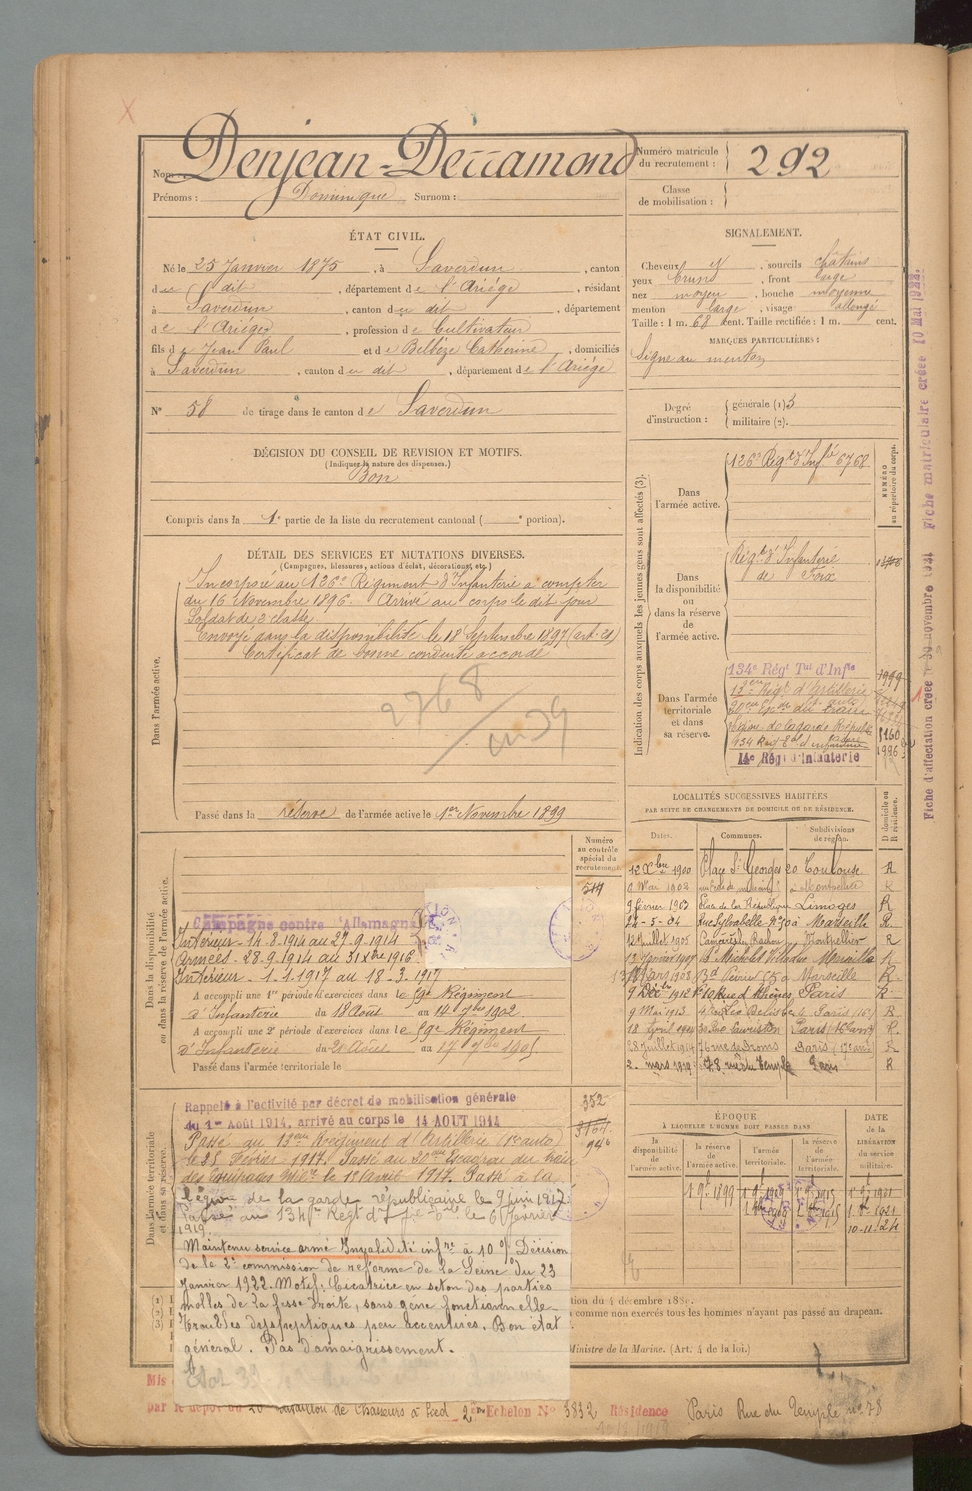 Nom : Denjean-Dessamond
Prénoms : Dominique Surnom :
Numéro matricule du recrutement : 292
Classe de mobilisation :
ÉTAT CIVIL.
Né le 25 Janvier 1875, à Saverdun, canton
du dit, département de l'Ariège, résidant
à Saverdun, canton du dit, département
de l'Ariège, profession de Cultivateur
fils de Jean Paul et de Belbèze Catherine, domiciliés
à Saverdun, canton du dit, département de l'Ariège
N° 58 de tirage dans le canton de Saverdun
SIGNALEMENT.
Cheveux et sourcils châtains
yeux bruns, front large
nez moyen, bouche moyenne
menton large, visage allongé
Taille : 1 m. 68 cent. Taille rectifiée : 1 m. cent.
MARQUES PARTICULIÈRES :
Signe au menton
Degré d'instruction : générale (1) 3
militaire (2).
DÉCISION DU CONSEIL DE REVISION ET MOTIFS.
(Indiquer la nature des dispenses.)
Bon
Compris dans la 1e partie de la liste du recrutement cantonal ( e portion).
DÉTAIL DES SERVICES ET MUTATIONS DIVERSES.
(Campagnes, blessures, actions d'éclat, décorations, etc.)
Dans l'armée active.
Incorporé au 126e Régiment d'Infanterie à compter
du 16 Novembre 1896. Arrivé au corps le dit jour
Soldat de 2e classe
Envoyé dans la disponibilité le 18 Septembre 1897 (art. 21)
Certificat de bonne conduite accordé
2768
Passé dans la réserve de l'armée active le 1er Novembre 1899
Indication des corps auxquels les jeunes gens sont affectés (3).
NUMÉRO au répertoire du corps.
Dans l'armée active.
126e Régt d'Infie 6768
Dans la disponibilité ou dans la réserve de l'armée active.
Régt d'Infanterie
de Foix
Dans l'armée territoriale et dans sa réserve.
134e Régt Tal d'Infie
13e Régt d'Artillerie
Légion de la garde Républic
134 Regt d'infanterie
14e Régt d'Infanterie
LOCALITÉS SUCCESSIVES HABITÉES
PAR SUITE DE CHANGEMENTS DE DOMICILE OU DE RÉSIDENCE.
Dates. Communes. Subdivisions de région. D domicile ou R résidence.
12 Xbre 1900 Place St Georges 20 Toulouse R
9 Mai 1902 Montpellier R
9 février 1903 Place de la République Limoges R
24-5-04 Rue Sylvabelle No 70 à Marseille R.
12 Juillet 1905 Montpellier R
13 Janvier 1907 Marseille R
13 Mars 1908 Marseille R
9 Déc. 1912 Paris R
9 Mai 1913 Paris R
18 Avril 1914 Paris R.
28 Juillet 1914 Paris (17e arr.) R
2. mars 1919 78 rue du Temple Paris R
Dans la disponibilité ou dans la réserve de l'armée active.
Numéro au contrôle spécial du recrutement.
Campagne contre l'Allemagne
Intérieur - 14.8.1914 au 27.9.1914
Armées - 28.9.1914 au 31 Xbre 1916
Intérieur - 1.1.1917 au 18.3.1917
A accompli une 1re période d'exercices dans le 59e Régiment
d'Infanterie du 18 Août au 14 7bre 1902
A accompli une 2e période d'exercices dans le 59e Régiment
d'Infanterie du 21 Août au 17 7bre 1905
Passé dans l'armée territoriale le
Dans l'armée territoriale et dans sa réserve.
Rappelé à l'activité par décret de mobilisation générale
du 1er Août 1914, arrivé au corps le 14 AOUT 1914
352
Passé au 13eme Régiment d'Artillerie (1e auto)
le 25 Février 1917. Passé au 20eme Escadron du train
des Equipages Mires le 1er Avril 1917. Passé à la
légion de la garde républicaine le 9 juin 1917
Passé au 134e Regt d'Ie tle le 6 février
1919.
Maintenu service armé Invalidité infre à 10 % Décision
de la 2e commission de réforme de la Seine du 23
Janvier 1922. Motif : Cicatrice en seton des parties
molles de la fesse droite, sans gêne fonctionnelle
troubles dyspeptiques peu accentués. Bon état
général. Pas d'amaigrissement.
ÉPOQUE
À LAQUELLE L'HOMME DOIT PASSER DANS
la disponibilité de l'armée active. la réserve de l'armée active. l'armée territoriale. la réserve de l'armée territoriale.
DATE de la LIBÉRATION du service militaire.
1 9e 1899 1 9e 1909 1 9e 1915 1 9e 1921
10-11-24
tion du 4 décembre 1889.
comme non exercés tous les hommes n'ayant pas passé au drapeau.
Ministre de la Marine. (Art. 4 de la loi.)
Mis
par le dépôt du 20 Bataillon de Chasseurs à Pied 2e Echelon No 3832 Résidence Paris Rue du Temple no 78
Fiche d'affectation créée le 30 novembre 1921 Fiche matriculaire créée 10 Mai 1922.